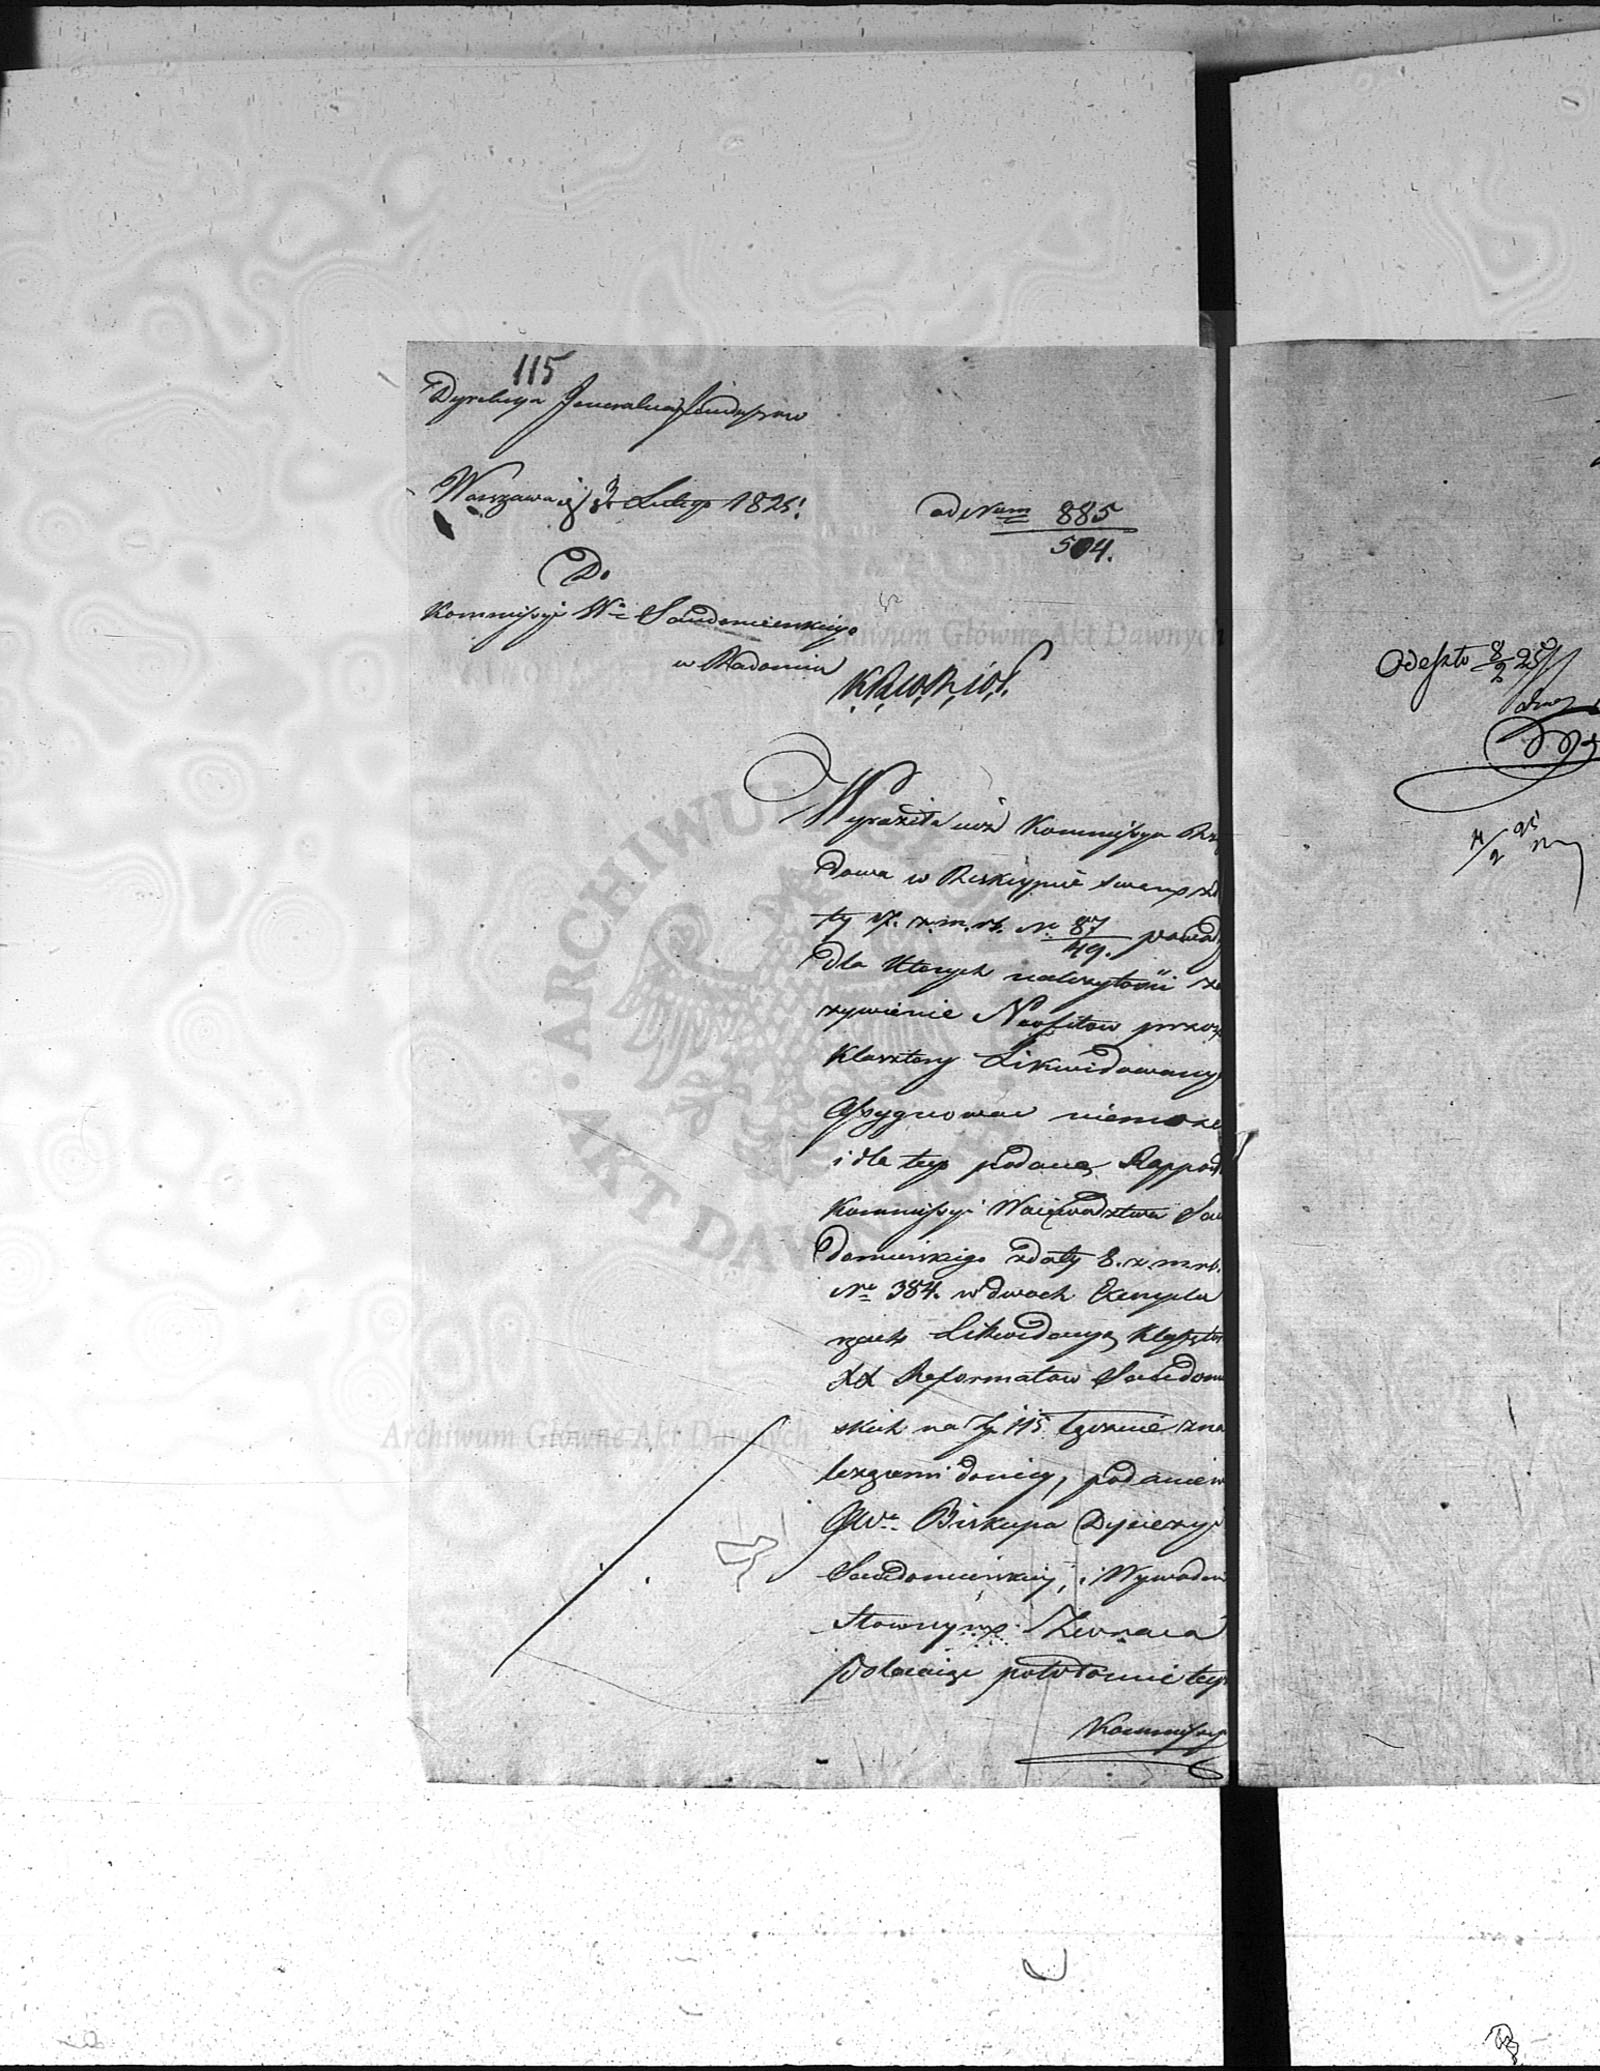 115
Dyrekcya Jeneralna Funduszow
Warszawa d. 3 Lutego 1825.
ad Num 885
504.
Do
Kommissyi Wa Sandomierskiego
w Radomiu
K.R.W.R.i O.P.
Wyraziła już Kommissya Rzą
dowa w Reskrypcie swem z da
ty 17. z. m. r. b. No 87 powody
49.
dla których należytości za
żywienie Neofitów przez
Klasztory Likwidowanych
Assygnować niemoże
i dla tego podane, Rapport
Kommissyi Woiewodztwa San
domierskiego z daty 8. z. m. r. b.
No 384. w dwoch Exempla
rzach Likwidacye, Klasztoru
XX Reformatow Sandomir
skich na Zł 115 łącznie zna
lezącemi doniey, podaniem
JWo Biskupa Dyecezyi
Sandomierskiey, i Wywodem
słownym Zwraca
Polecaiąc
Kommissyi
Odeszło 8/2 25
4/2 25
Archiwum Główne Akt Dawnych
Archiwum Główne Akt Dawnych
ARCHIWUM GŁÓWNE AKT DAWNYCH